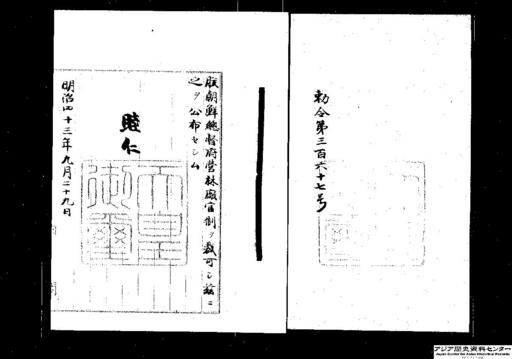 勅令第三百六十七号
朕朝鮮総督府営林廠官制ヲ裁可シ茲ニ
之ヲ公布セシム
睦仁
天皇
御璽
明治四十三年九月二十九日
アジア歴史資料センター
Japan Center for Asian Historical Records